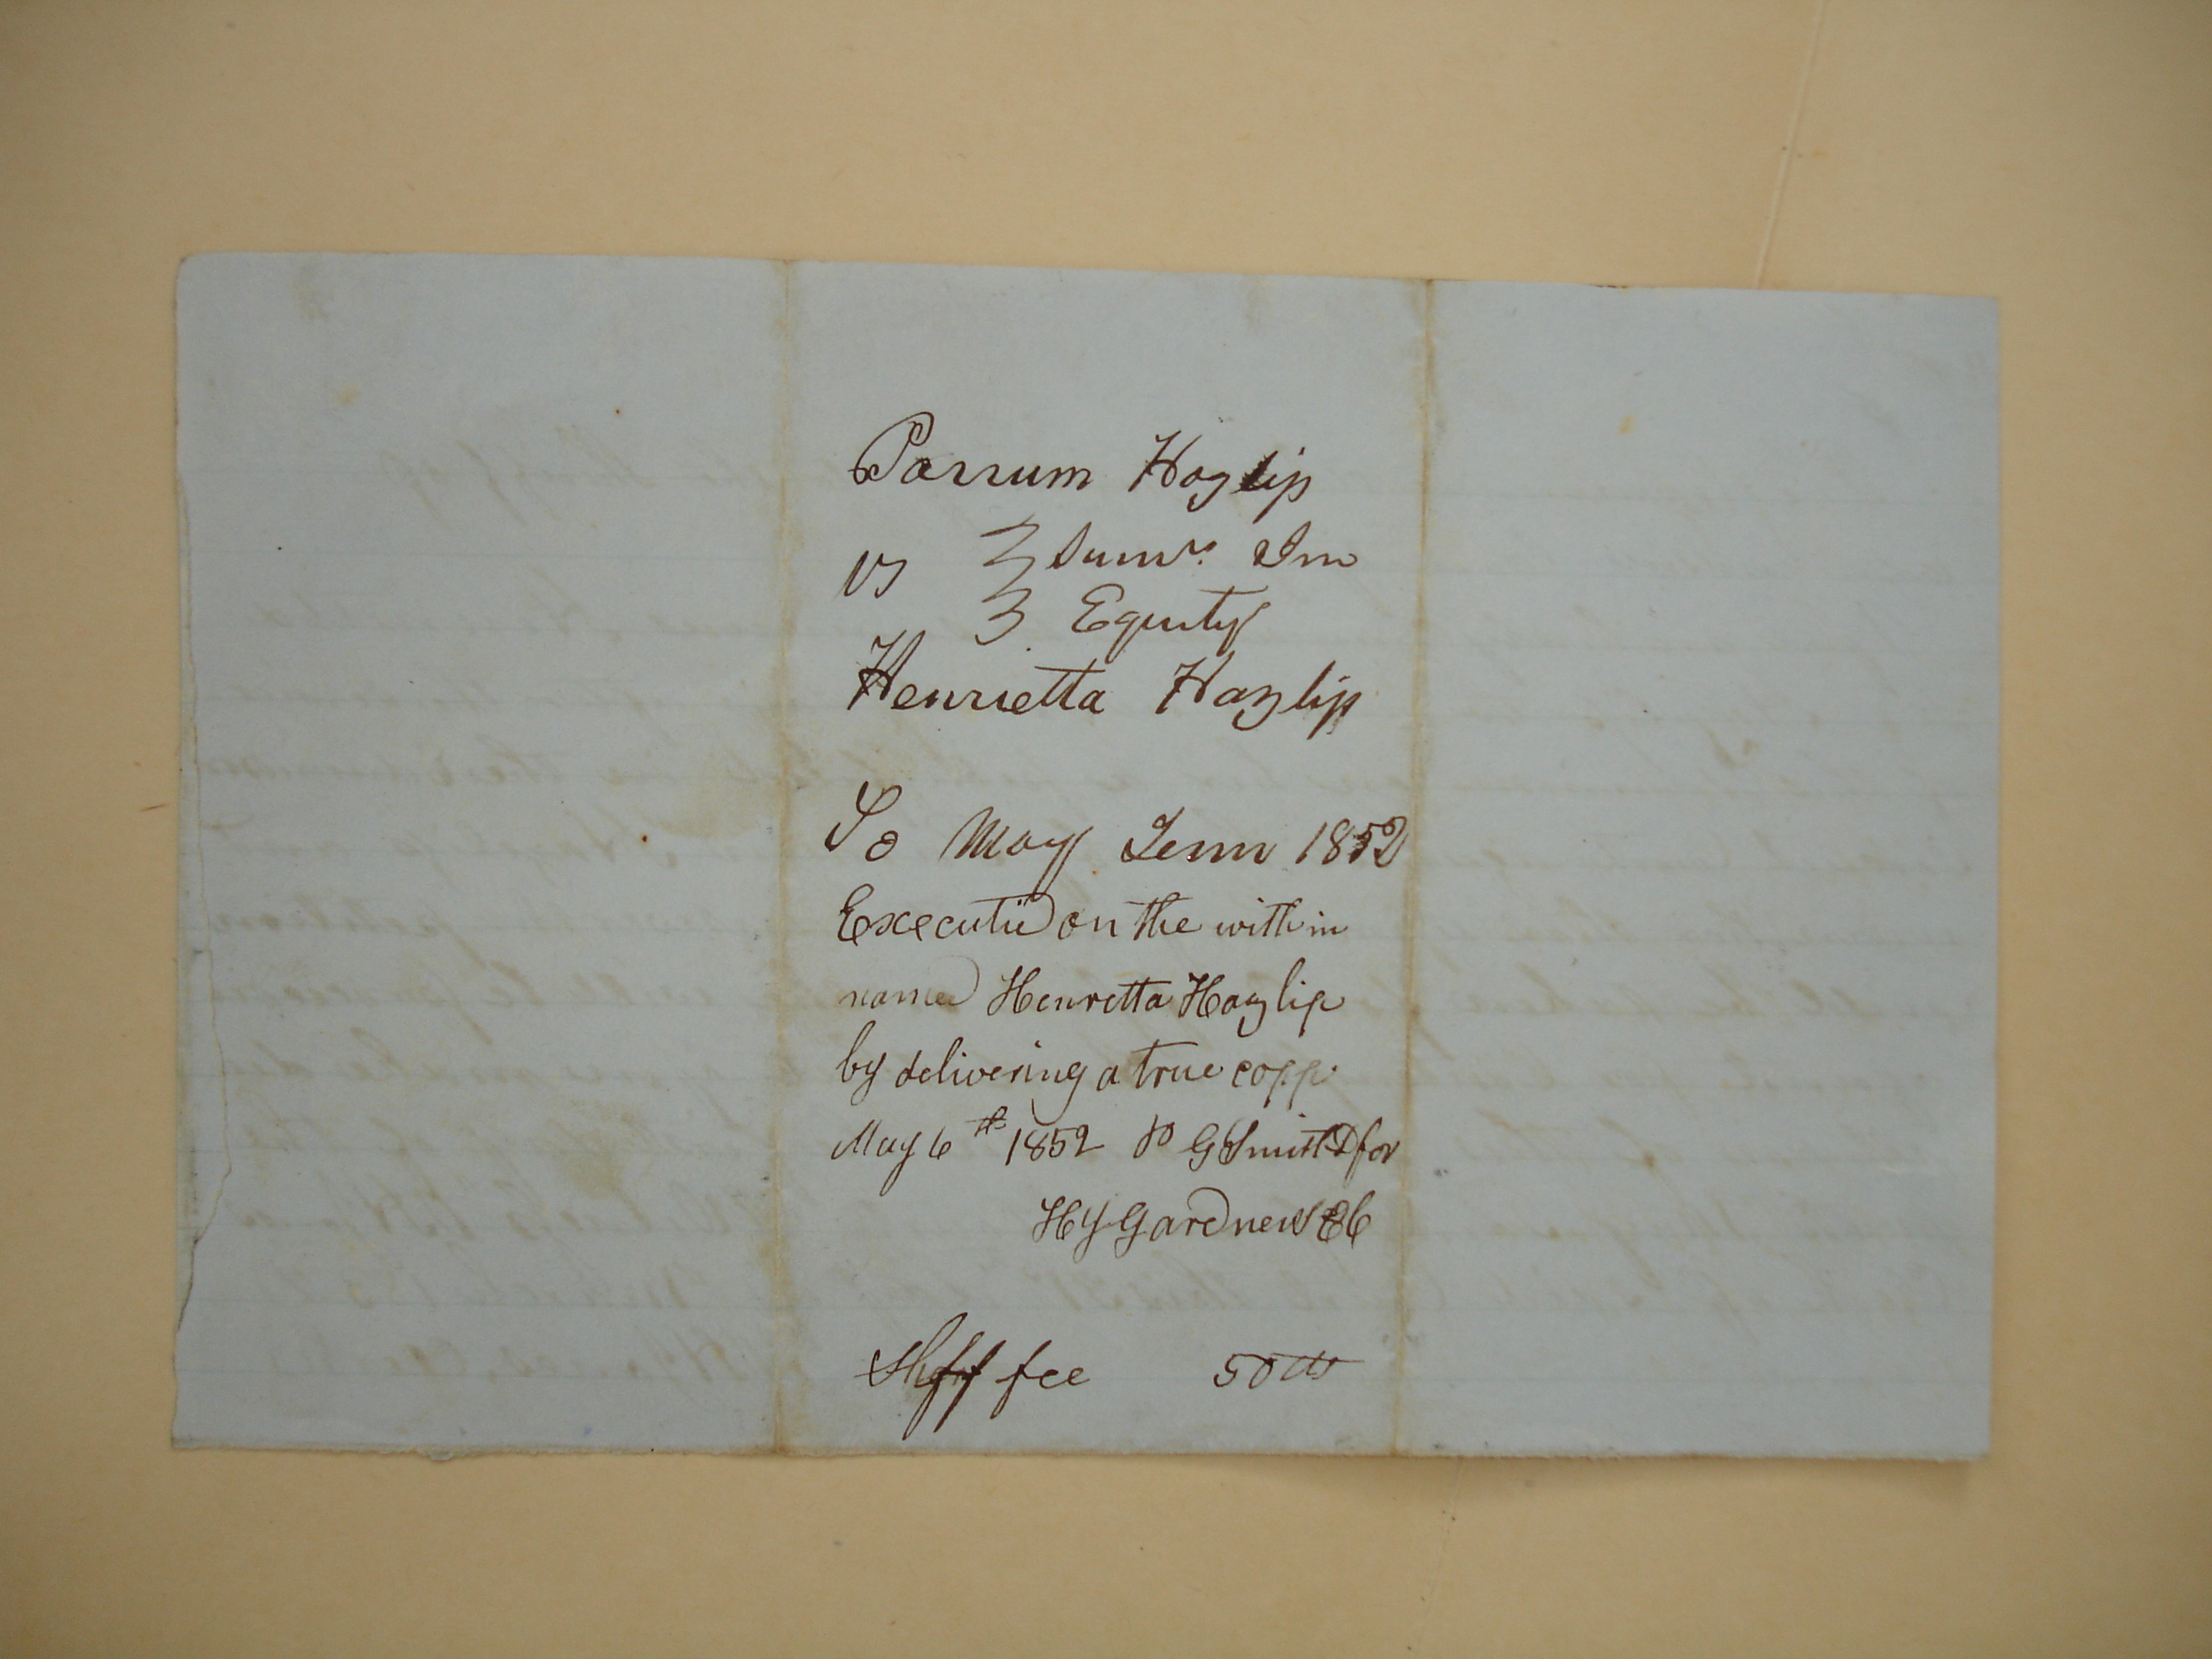 Parrum Hazlip
vs } Sum's. In
} Equity
Henrietta Hazlip
To May Term 1852
Executed on the within
named Henretta Hazlip
by delivering a true copy
May 6th 1852 P G Smith D for
Hy Gardner
Shff fee 50cts